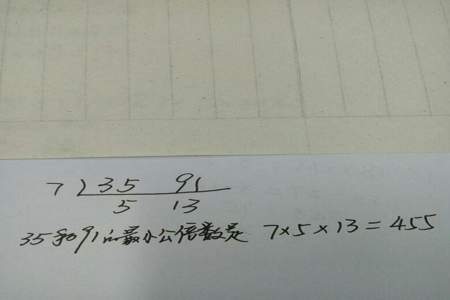 7 35 91
5 13
35和91的最小公倍数是 7×5×13=455